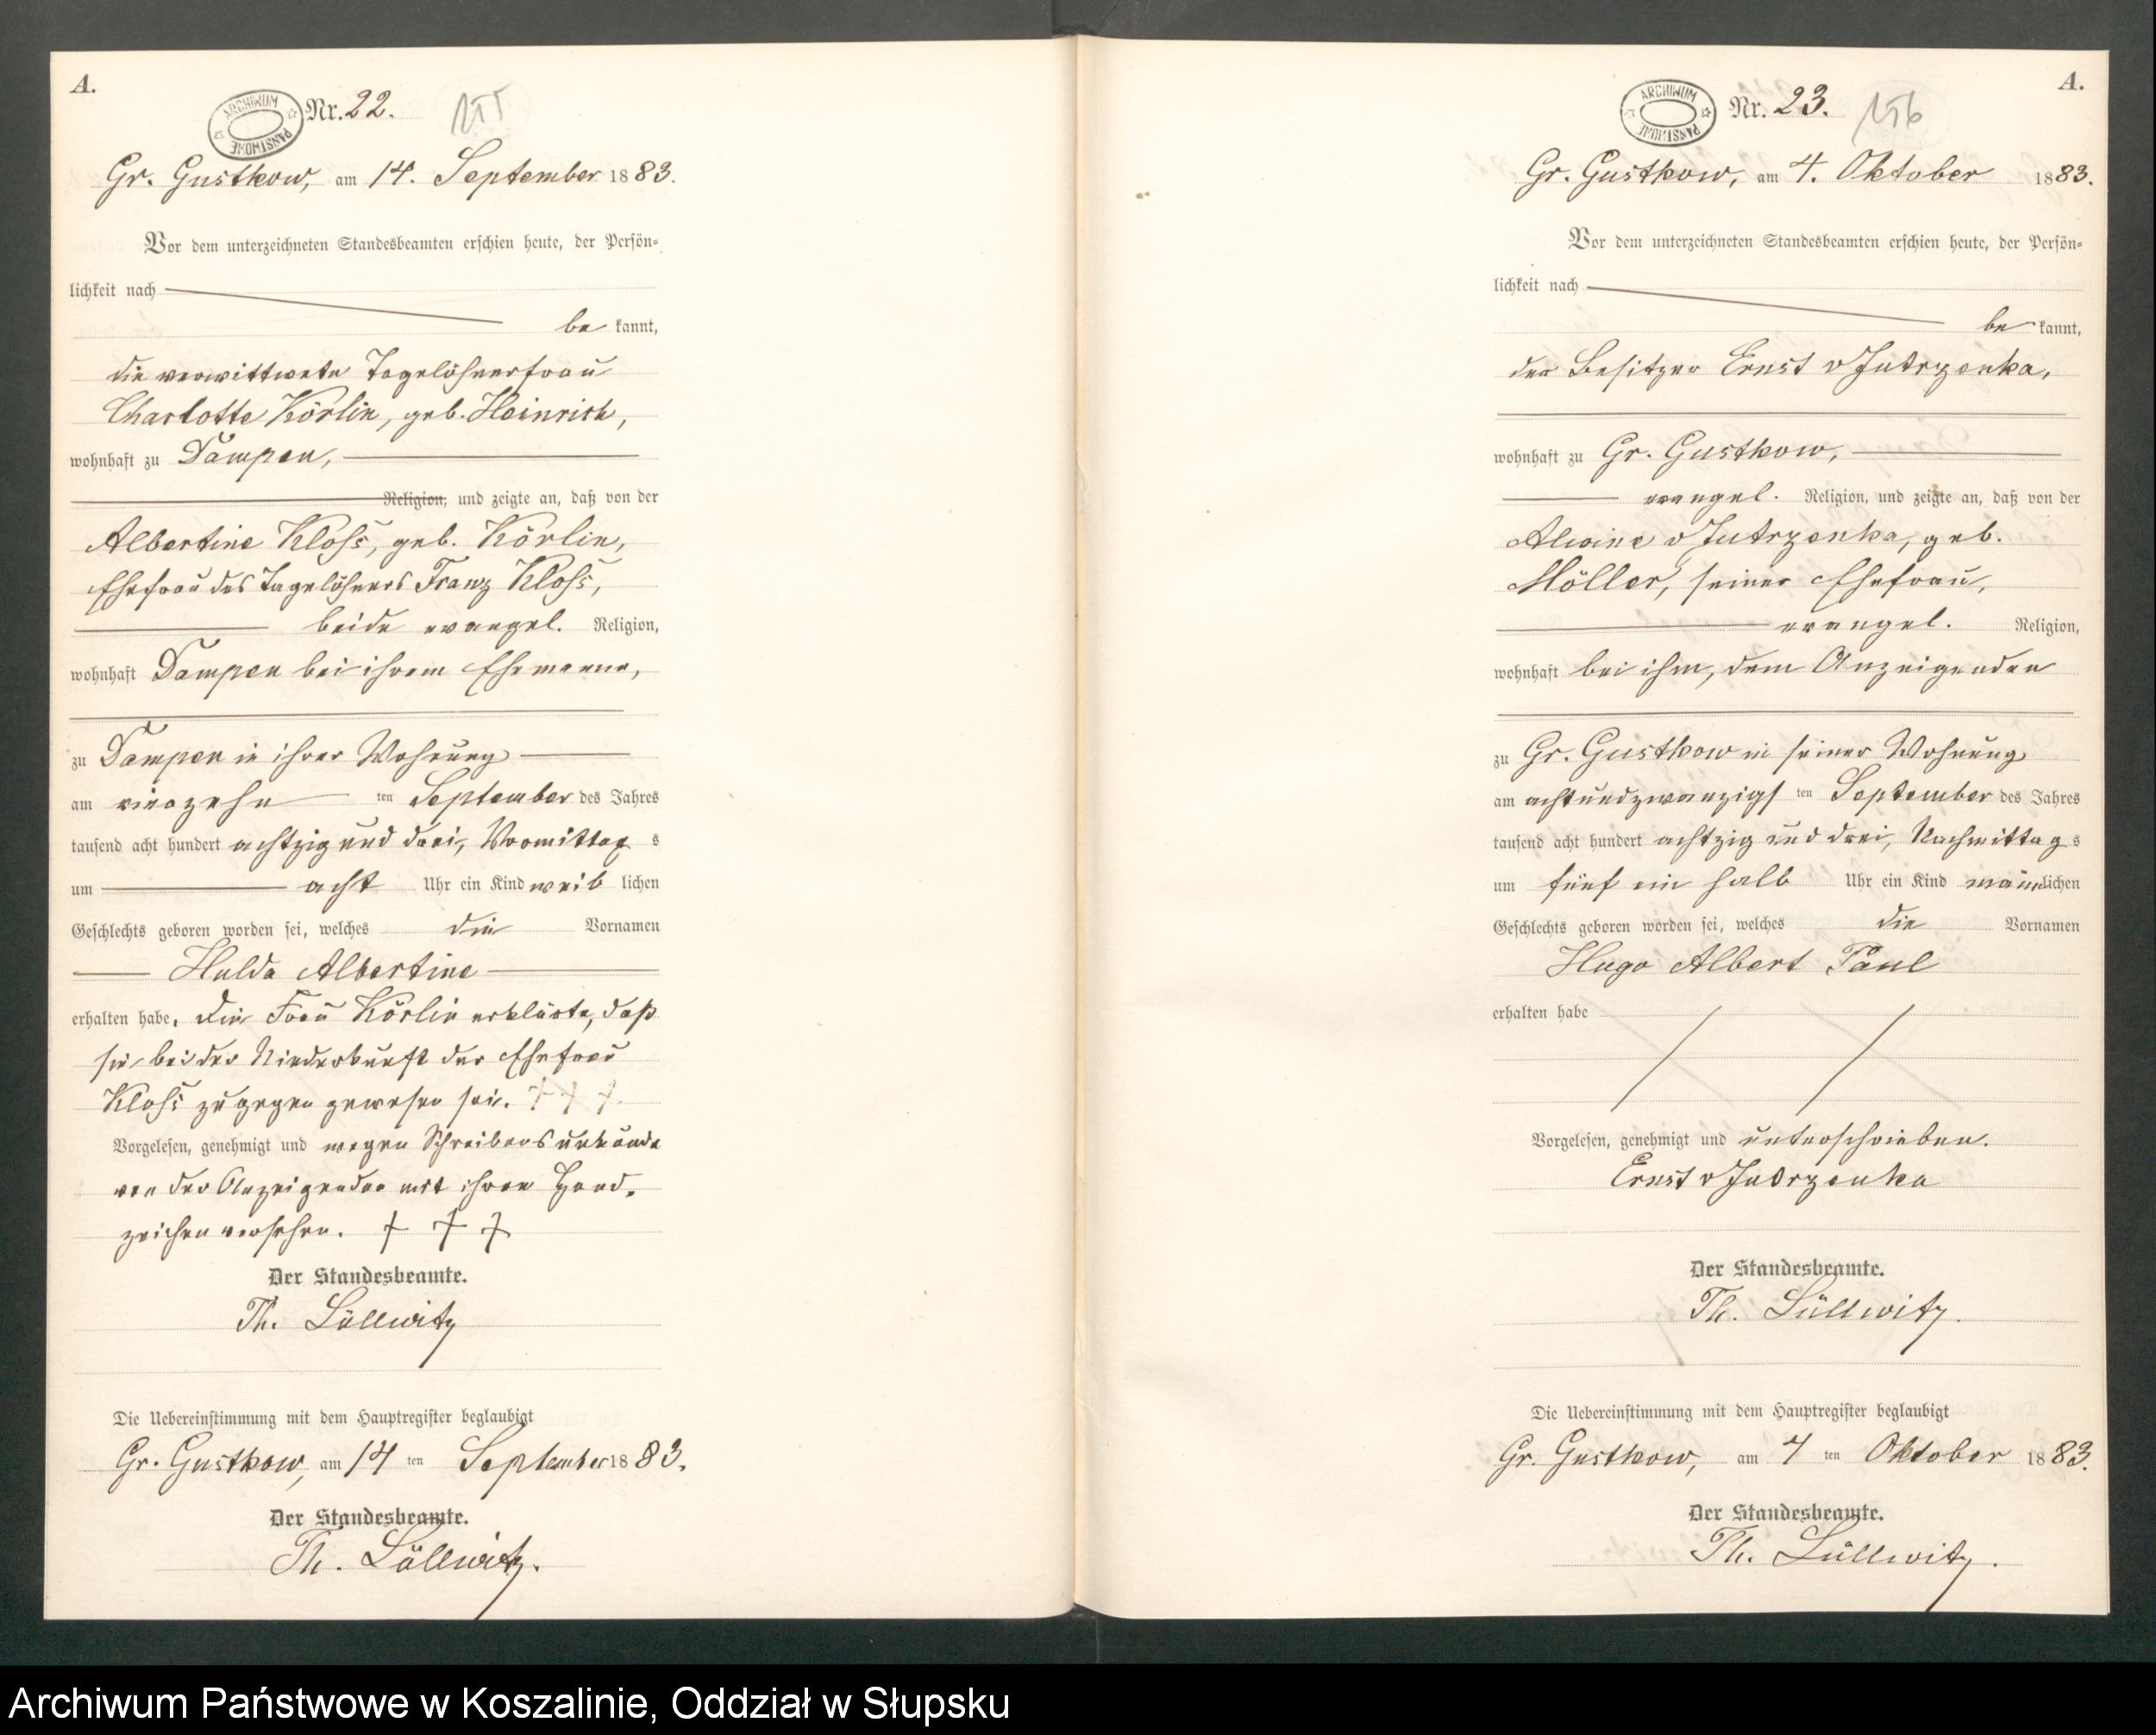 A.
ARCHIWUM PAŃSTWOWE
Nr. 22.
155
Gr. Gustkow, am 14. September 1883.
Vor dem unterzeichneten Standesbeamten erschien heute, der Persön-
lichkeit nach
be kannt,
die verwittwete Tagelöhnerfrau
Charlotte Körlin, geb. Heinrich,
wohnhaft zu Dampen,
Religion, und zeigte an, daß von der
Albertine Kloß, geb. Körlin,
Ehefrau des Tagelöhners Franz Kloß,
beide evangel. Religion,
wohnhaft Dampen bei ihrem Ehemanne,
zu Dampen in ihrer Wohnung
am vierzehn ten September des Jahres
tausend acht hundert achtzig und drei, Vormittag s
um acht Uhr ein Kind weib lichen
Geschlechts geboren worden sei, welches die Vornamen
Hulda Albertine
erhalten habe. Die Frau Körlin erklärte, daß
sie bei der Niederkunft der Ehefrau
Kloß zugegen gewesen sei. + + +
Vorgelesen, genehmigt und wegen Schreibensunkunde
von der Anzeigenden mit ihrem Hand-
zeichen versehen. + + +
Der Standesbeamte.
Th. Lüllwitz
Die Uebereinstimmung mit dem Hauptregister beglaubigt
Gr. Gustkow, am 14 ten September 1883.
Der Standesbeamte.
Th. Lüllwitz.
A.
ARCHIWUM PAŃSTWOWE
Nr. 23.
156
Gr. Gustkow, am 4. Oktober 1883.
Vor dem unterzeichneten Standesbeamten erschien heute, der Persön-
lichkeit nach
be kannt,
der Besitzer Ernst v Jutrzenka,
wohnhaft zu Gr. Gustkow,
evangel. Religion, und zeigte an, daß von der
Alwine v Jutrzenka, geb.
Möller, seiner Ehefrau,
evangel. Religion,
wohnhaft bei ihm, dem Anzeigenden
zu Gr. Gustkow in seiner Wohnung
am achtundzwanzigs ten September des Jahres
tausend acht hundert achtzig und drei, Nachmittag s
um fünf ein halb Uhr ein Kind männlichen
Geschlechts geboren worden sei, welches die Vornamen
Hugo Albert Paul
erhalten habe
Vorgelesen, genehmigt und unterschrieben.
Ernst v Jutrzenka
Der Standesbeamte.
Th. Lüllwitz.
Die Uebereinstimmung mit dem Hauptregister beglaubigt
Gr. Gustkow, am 4 ten Oktober 1883.
Der Standesbeamte.
Th. Lüllwitz.
Archiwum Państwowe w Koszalinie, Oddział w Słupsku